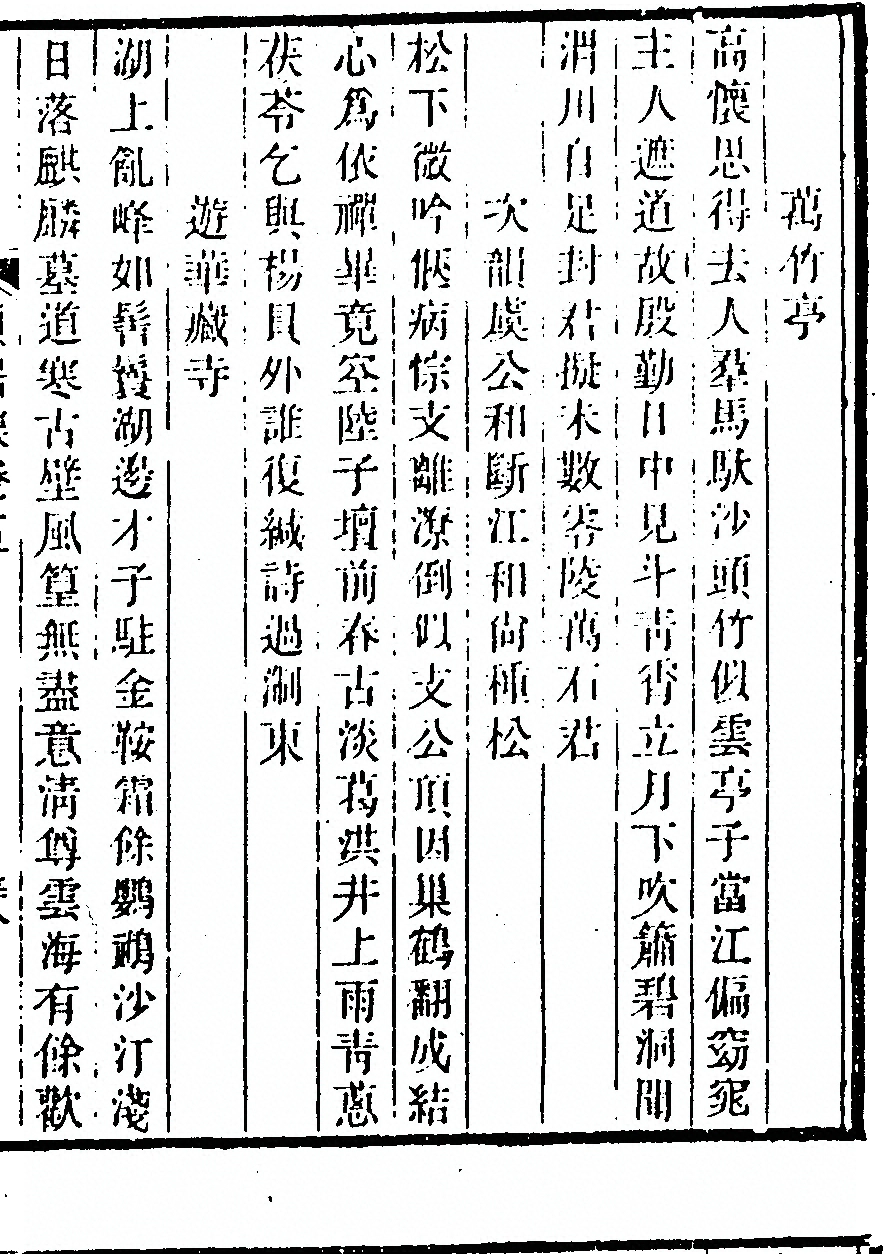 萬竹亭
高懷思得去人羣馬馱沙頭竹似雲亭子當江偏窈窕
主人遮道故殷勤日中見斗靑霄立月下吹簫碧洞聞
渭川自足封君擬未數零陵萬石君
次韻虞公和斷江和尚種松
松下微吟愜病悰支離潦倒似支公頂因巢鶴翻成結
心爲依禪畢竟空陸子壇前春古淡葛洪井上雨靑蔥
茯苓乞與楊員外誰復緘詩過浙東
遊華藏寺
湖上亂峰如髻鬟湖邊才子駐金鞍霜餘鸂鶒沙汀淺
日落麒麟墓道寒古壁風篁無盡意淸尊雲海有餘歡